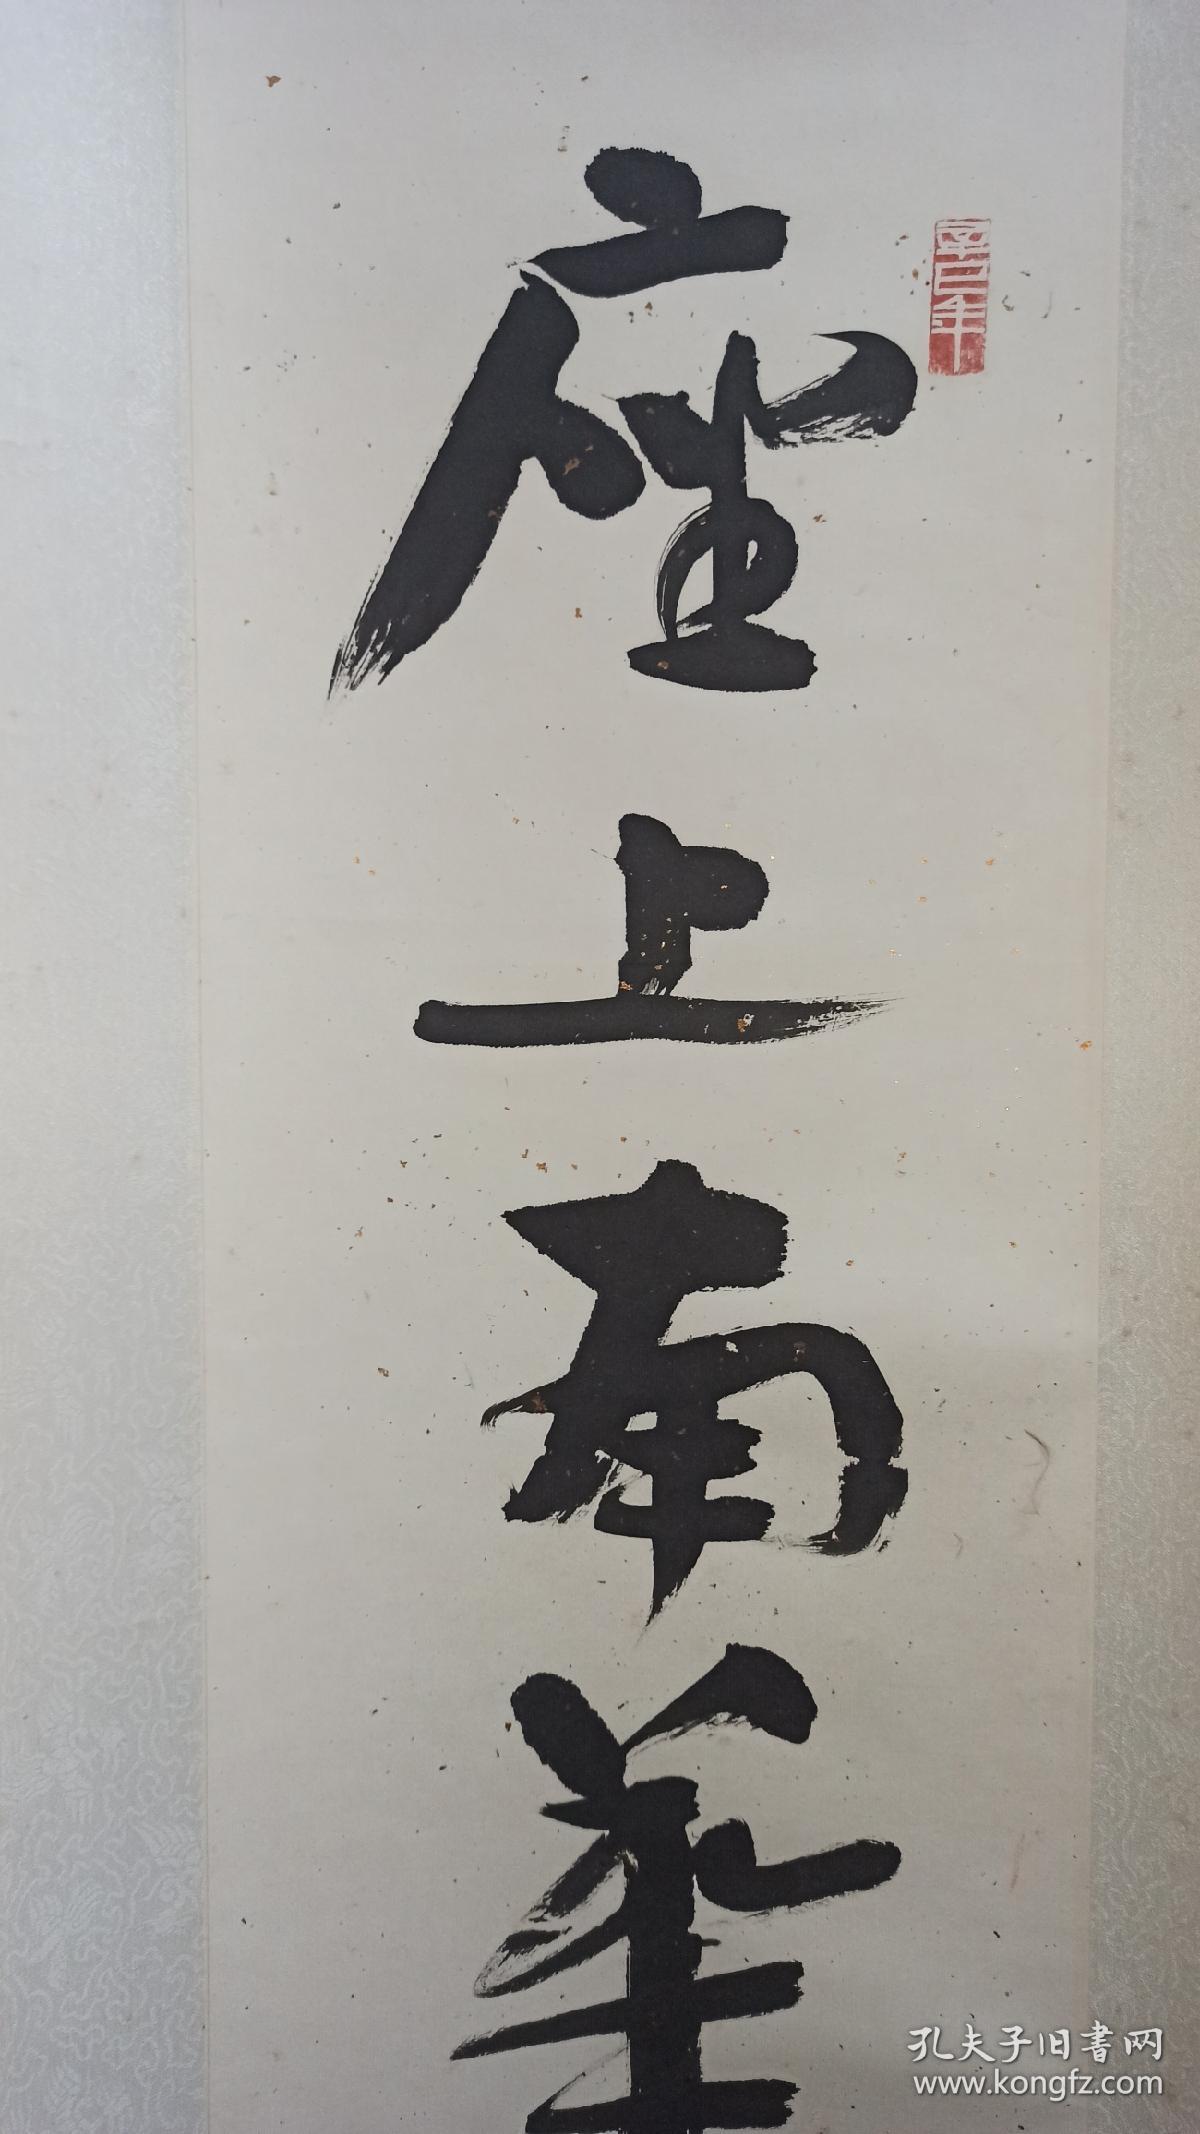 座上南華
辛巳年
孔夫子旧書网
www.kongfz.com